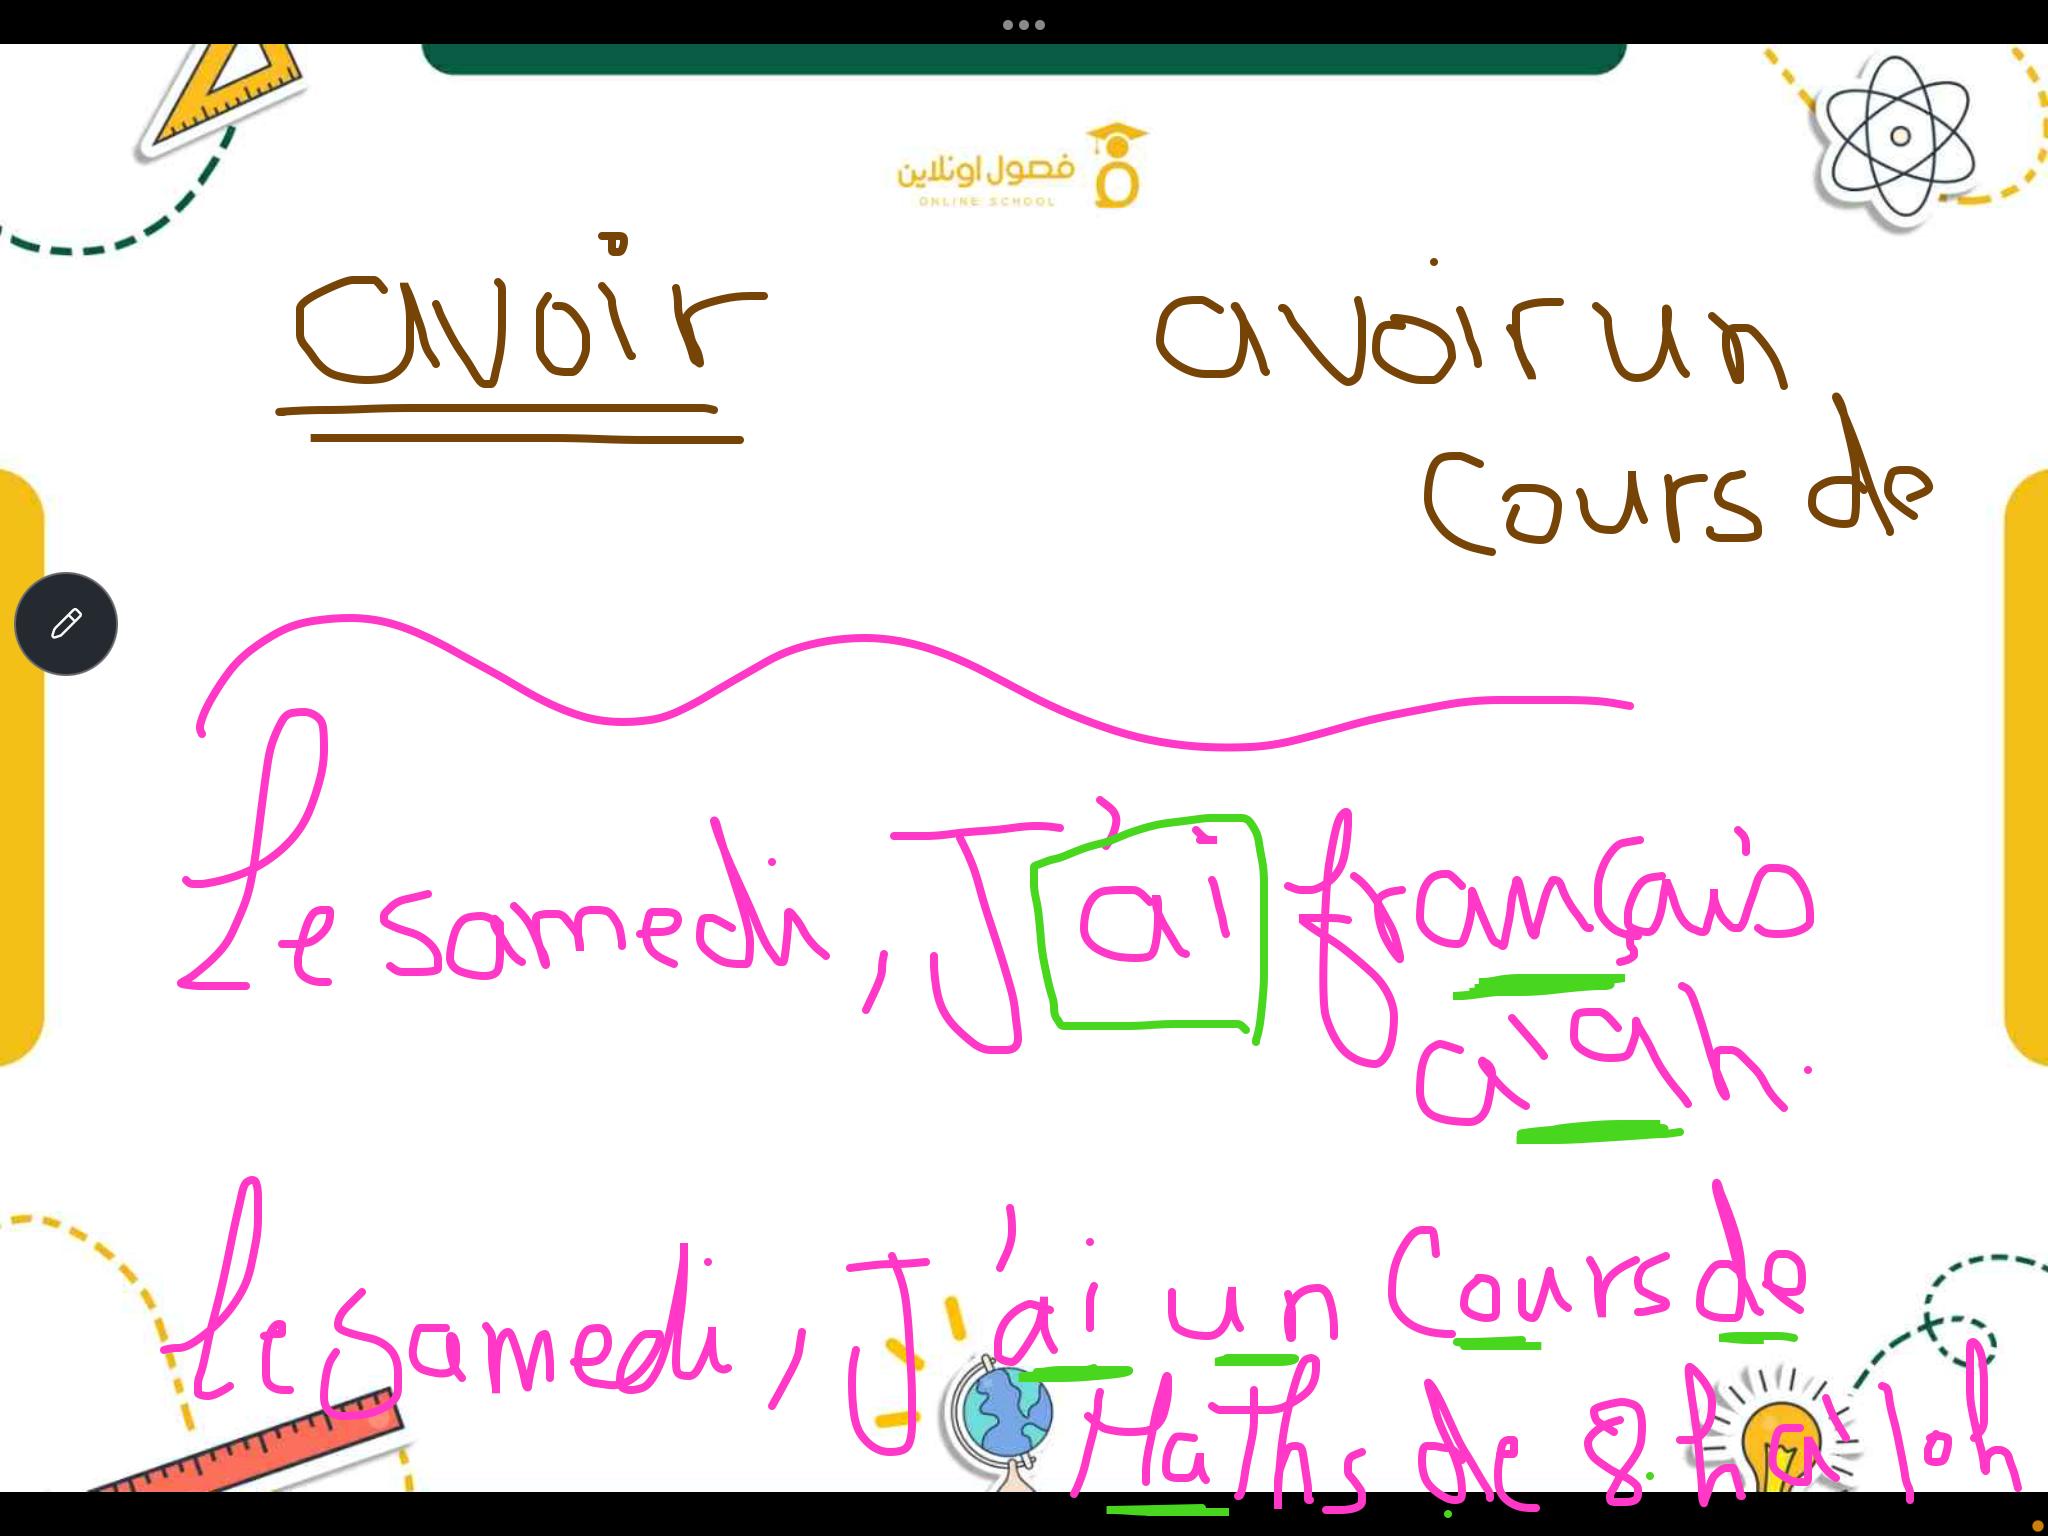 فصول اونلاين
ONLINE SCHOOL
avoir
avoir un
cours de
Le samedi, J'ai français
à 9h.
Le samedi, J'ai un cours de
Maths de 8h à 10h